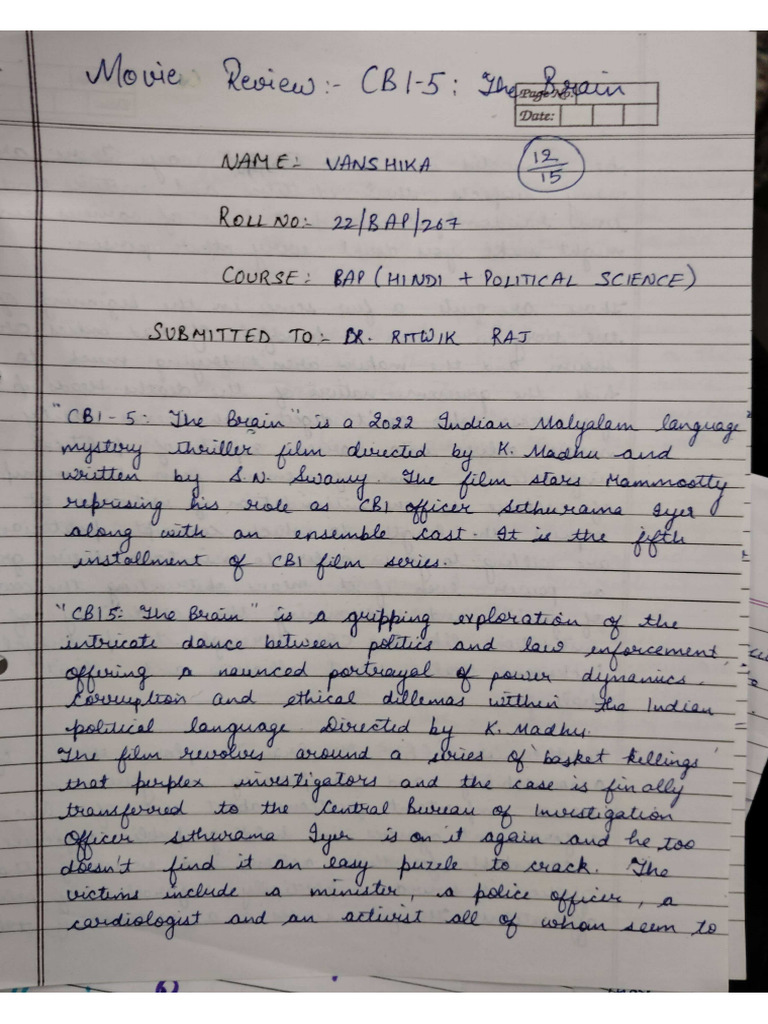 Movie Review:- CBI-5: The Brain
Page No:
Date:
NAME:- VANSHIKA
12/15
ROLL NO:- 22/BAP/267
COURSE: BAP (HINDI + POLITICAL SCIENCE)
SUBMITTED TO:- DR. RITWIK RAJ
"CBI-5: The Brain" is a 2022 Indian Malyalam language
mystery thriller film directed by K. Madhu and
written by S.N. Swamy. The film stars Mammootty
reprising his role as CBI officer Sethurama Iyer
along with an ensemble cast. It is the fifth
installment of CBI film series.
"CBI5: The Brain" is a gripping exploration of the
intricate dance between politics and law enforcement,
offering a naunced portrayal of power dynamics.
Corruption and ethical dillemas within the Indian
political language. Directed by K. Madhu.
The film revolves around a series of 'basket killings'
that perplex investigators and the case is finally
transferred to the Central Bureau of Investigation
Officer Sethurama Iyer is on it again and he too
doesn't find it an easy puzzle to crack. The
victims include a minister, a police officer, a
cardiologist and an activist all of whom seem to